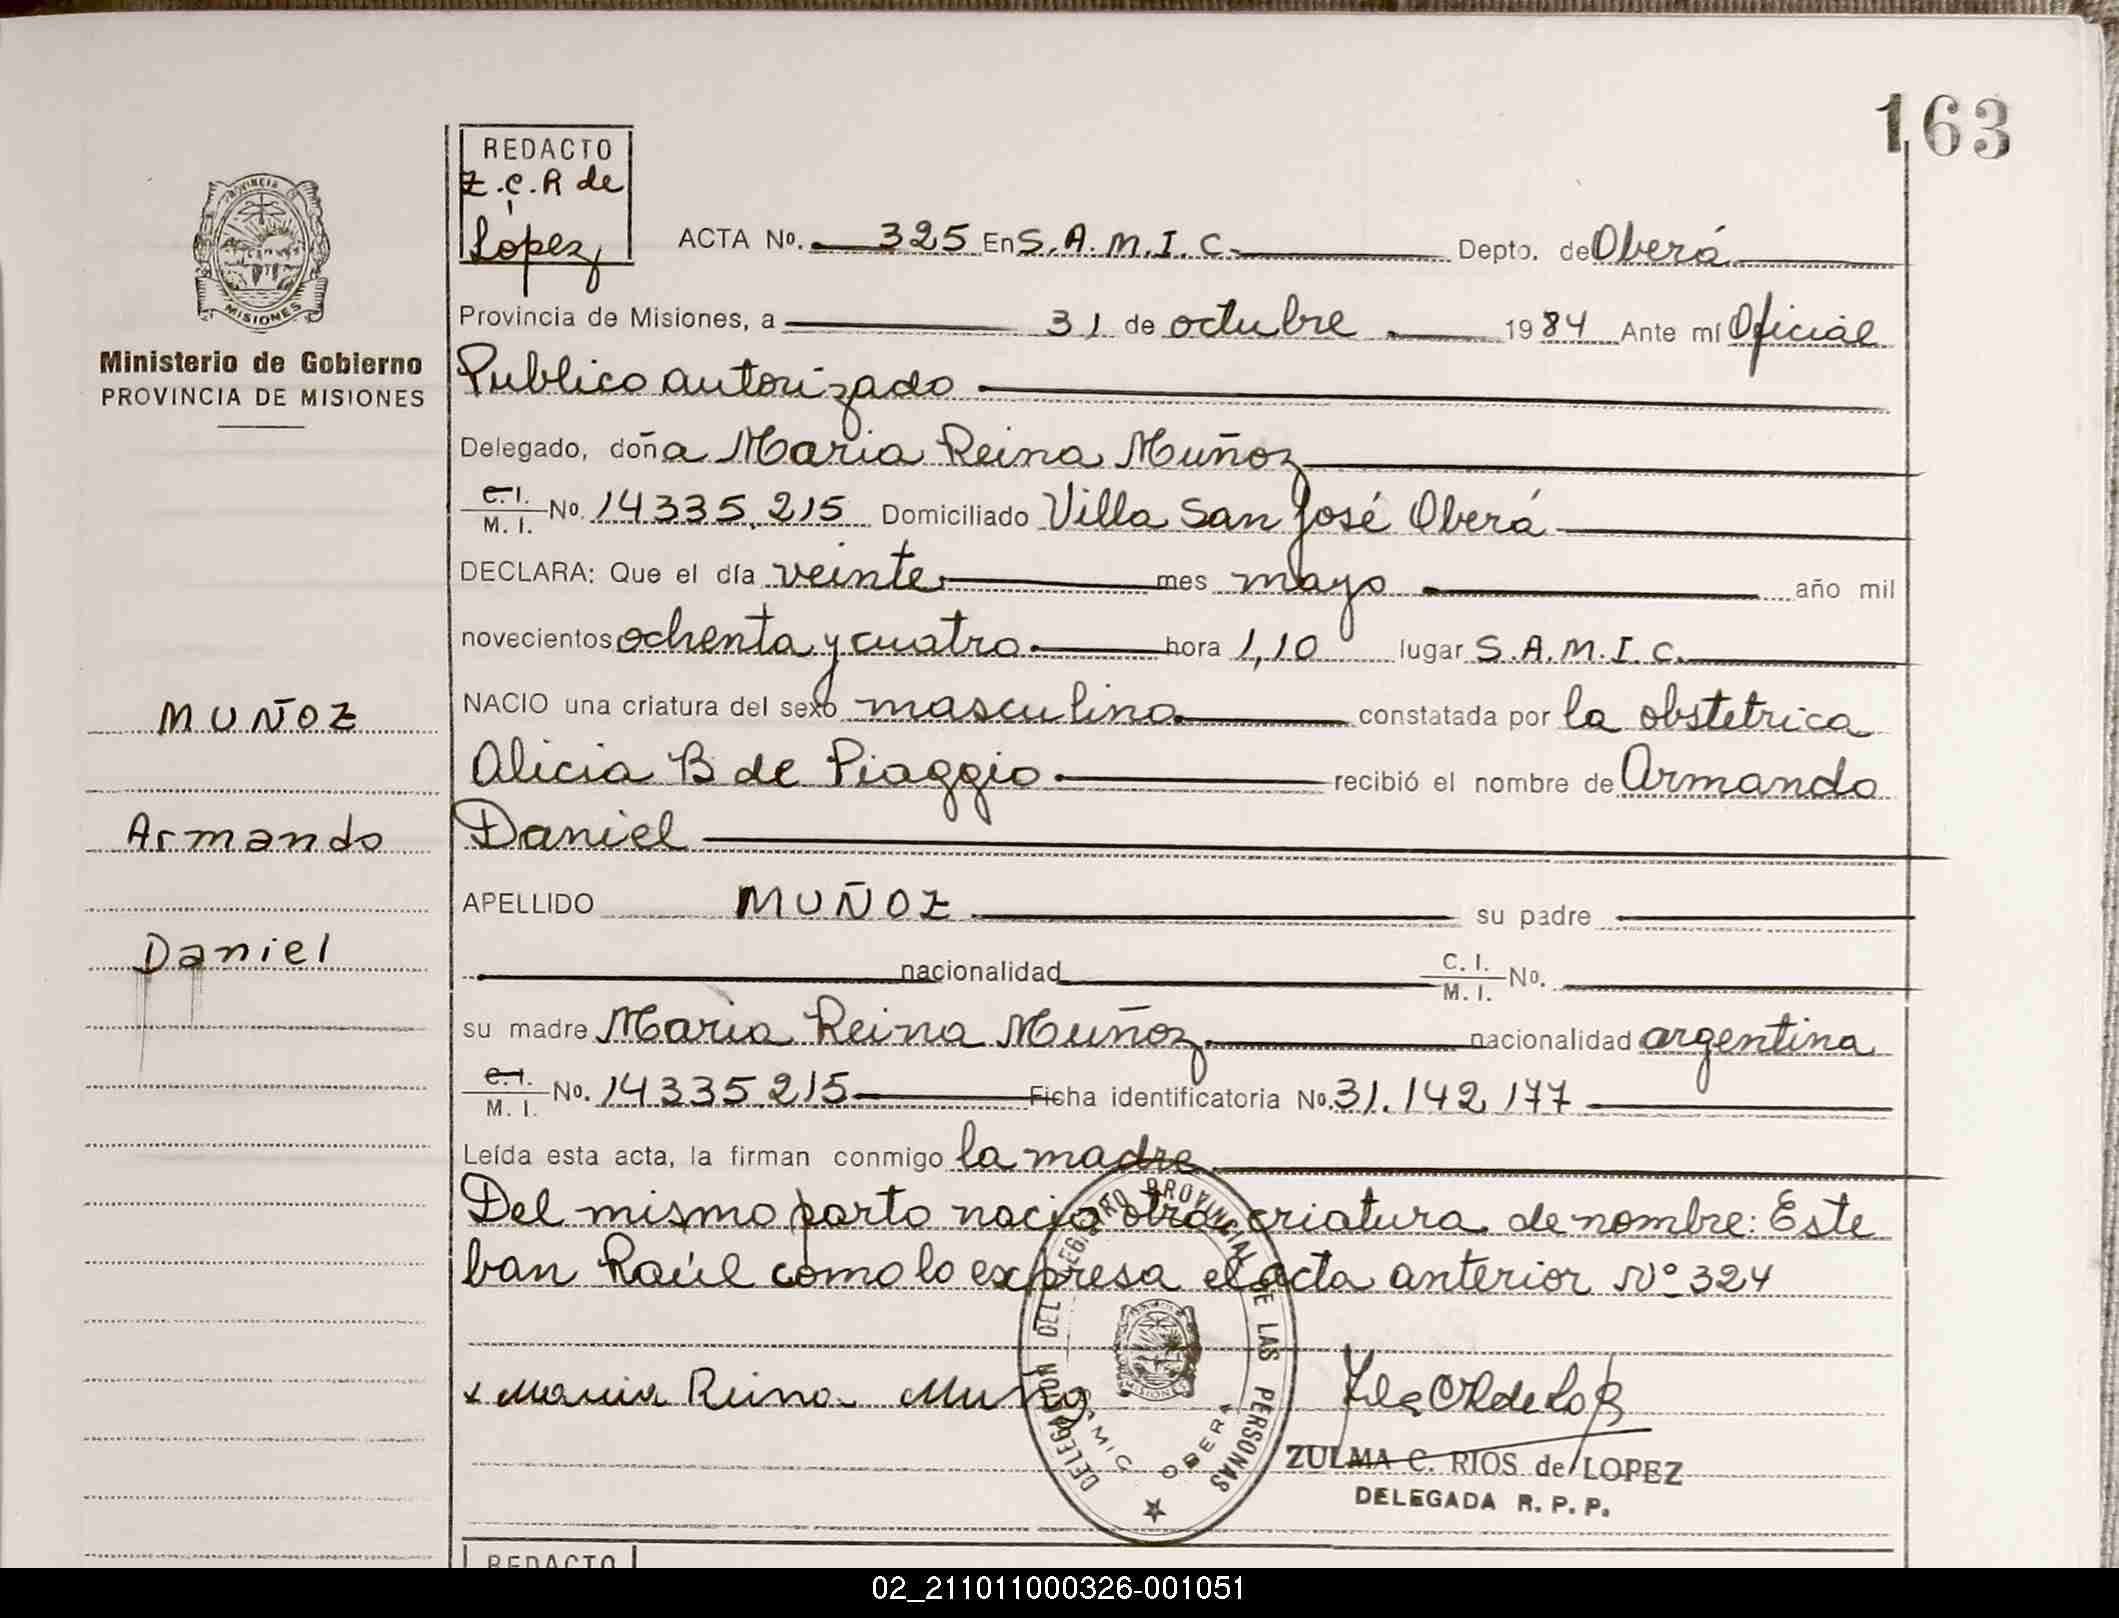 163
REDACTO
Z.C.R de
Lopez
ACTA No. 325 En S.A.M.I.C. Depto. de Oberá
PROVINCIA DE
MISIONES
Provincia de Misiones, a 31 de octubre 1984 Ante mí Oficial
Ministerio de Gobierno
PROVINCIA DE MISIONES
Publico autorizado
Delegado, doña Maria Reina Muñoz
C.I. M.I. No. 14335.215 Domiciliado Villa San José Oberá
DECLARA: Que el día veinte mes mayo año mil
novecientos ochenta y cuatro hora 1,10 lugar S.A.M.I.C.
MUÑOZ
NACIO una criatura del sexo masculino constatada por la obstetrica
Alicia B de Piaggio recibió el nombre de Armando
Armando
Daniel
APELLIDO MUÑOZ su padre
Daniel
nacionalidad C.I. M.I. No.
su madre Maria Reina Muñoz nacionalidad argentina
C.I. M.I. No. 14335.215 Ficha identificatoria No. 31.142,177
Leída esta acta, la firman conmigo la madre
Del mismo parto nacio otra criatura de nombre: Este
ban Raúl como lo expresa el acta anterior Nº 324
x Maria Reina Muñoz
DELEGACION DEL REGISTRO PROVINCIAL DE LAS PERSONAS
MISIONES
SAMIC OBERA
ZULMA C. RIOS de LOPEZ
DELEGADA R.P.P.
REDACTO
02_211011000326-001051